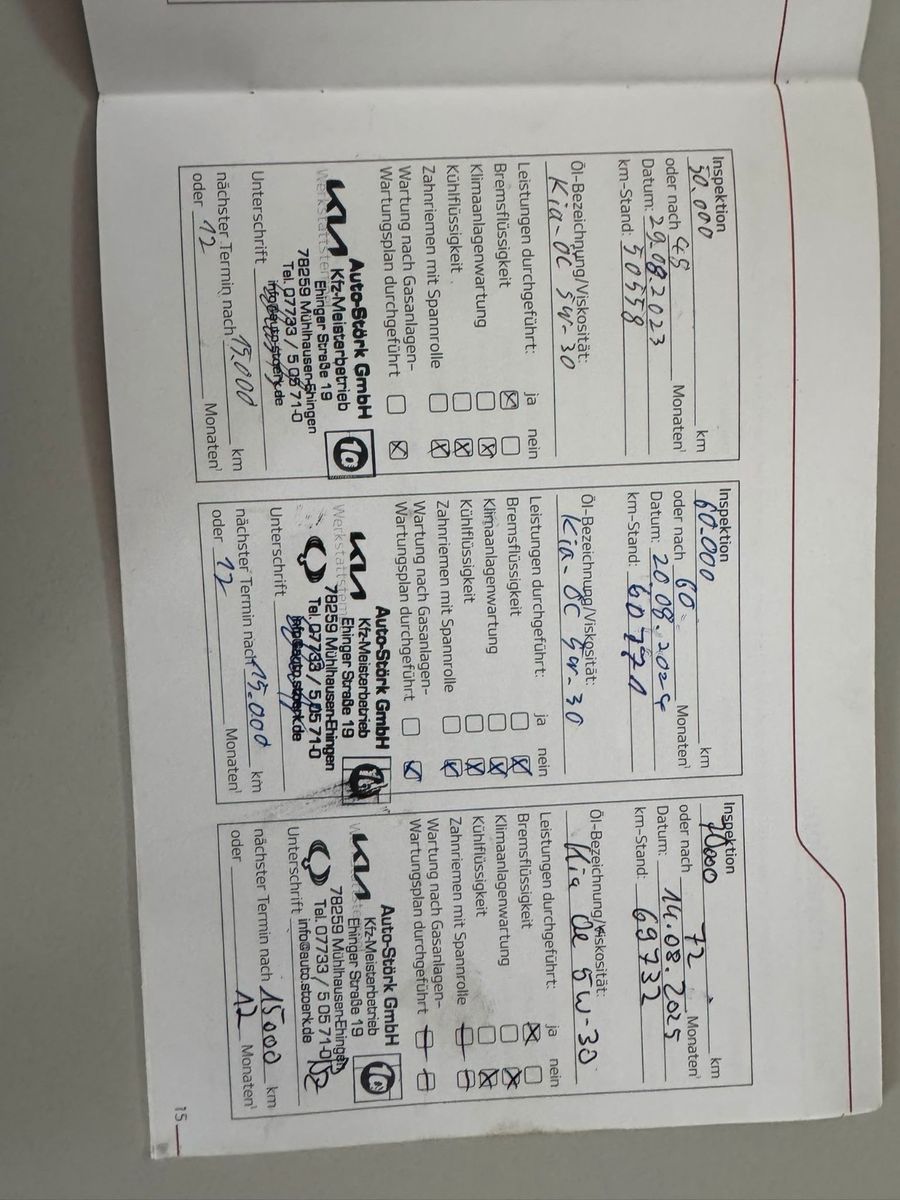 Inspektion
50.000 km
oder nach 48 Monaten¹
Datum: 29.08.2023
km-Stand: 50558
Öl-Bezeichnung/Viskosität:
Kia-öl 5w-30
Leistungen durchgeführt: ja nein
Bremsflüssigkeit ☒ ☐
Klimaanlagenwartung ☐ ☒
Kühlflüssigkeit ☐ ☒
Zahnriemen mit Spannrolle ☐ ☒
Wartung nach Gasanlagen-
Wartungsplan durchgeführt ☐ ☒
Auto-Störk GmbH
KIA Kfz-Meisterbetrieb
Ehinger Straße 19
78259 Mühlhausen-Ehingen
Tel. 07733 / 5 05 71-0
info@auto.stoerk.de
Unterschrift
nächster Termin nach 15.000 km
oder 12 Monaten¹
Inspektion
60.000 km
oder nach 60 Monaten¹
Datum: 20.08.2024
km-Stand: 60771
Öl-Bezeichnung/Viskosität:
Kia-öl 5w-30
Leistungen durchgeführt: ja nein
Bremsflüssigkeit ☐ ☒
Klimaanlagenwartung ☐ ☒
Kühlflüssigkeit ☐ ☒
Zahnriemen mit Spannrolle ☐ ☒
Wartung nach Gasanlagen-
Wartungsplan durchgeführt ☐ ☒
Auto-Störk GmbH
KIA Kfz-Meisterbetrieb
Ehinger Straße 19
78259 Mühlhausen-Ehingen
Tel. 07733 / 5 05 71-0
info@auto.stoerk.de
Unterschrift
nächster Termin nach 15.000 km
oder 12 Monaten¹
Inspektion
70000 km
oder nach 72 Monaten¹
Datum: 14.08.2025
km-Stand: 69732
Öl-Bezeichnung/Viskosität:
Kia Oe 5W-30
Leistungen durchgeführt: ja nein
Bremsflüssigkeit ☒ ☐
Klimaanlagenwartung ☐ ☒
Kühlflüssigkeit ☐ ☒
Zahnriemen mit Spannrolle
Wartung nach Gasanlagen-
Wartungsplan durchgeführt
Auto-Störk GmbH
KIA Kfz-Meisterbetrieb
Ehinger Straße 19
78259 Mühlhausen-Ehingen
Tel. 07733 / 5 05 71-0
info@auto.stoerk.de
Unterschrift
nächster Termin nach 15000 km
oder 12 Monaten¹
15